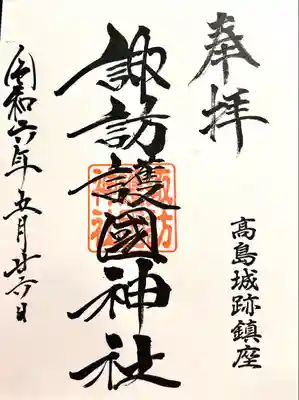 奉拝
高島城跡鎮座
諏訪護國神社
諏訪
神社
令和六年五月廿六日